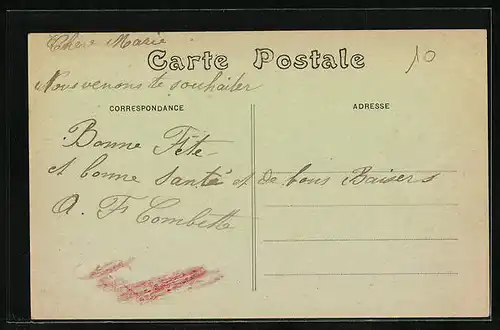 Chere Marie
Carte Postale
10
Nous venons te souhaiter
CORRESPONDANCE
ADRESSE
Bonne Fête
et bonne Santé et de bons Baisers
A. Fs Combette